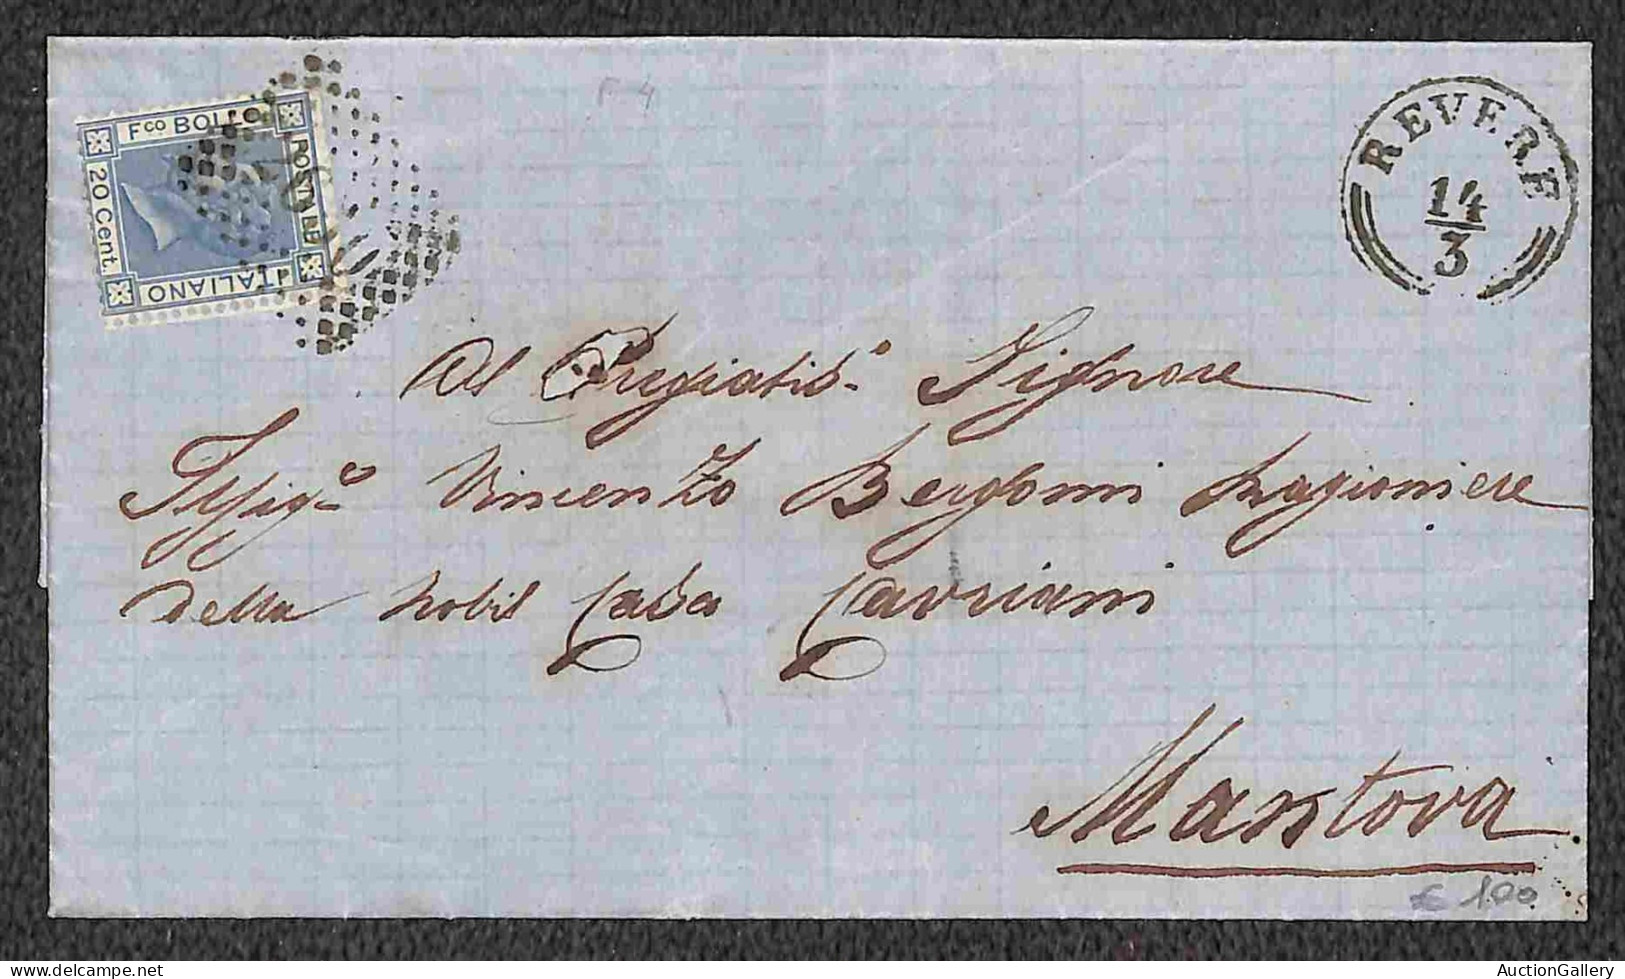 F 4
Fco BOLLO
POSTALE
ITALIANO
20 Cent.
REVERE
14
3
Al Pregiatis.o Signore
Sig.r Vincenzo Bergomi Ragioniere
della Nobil Casa Cavriani
Mantova
€ 100
delcampe.net
AuctionGallery